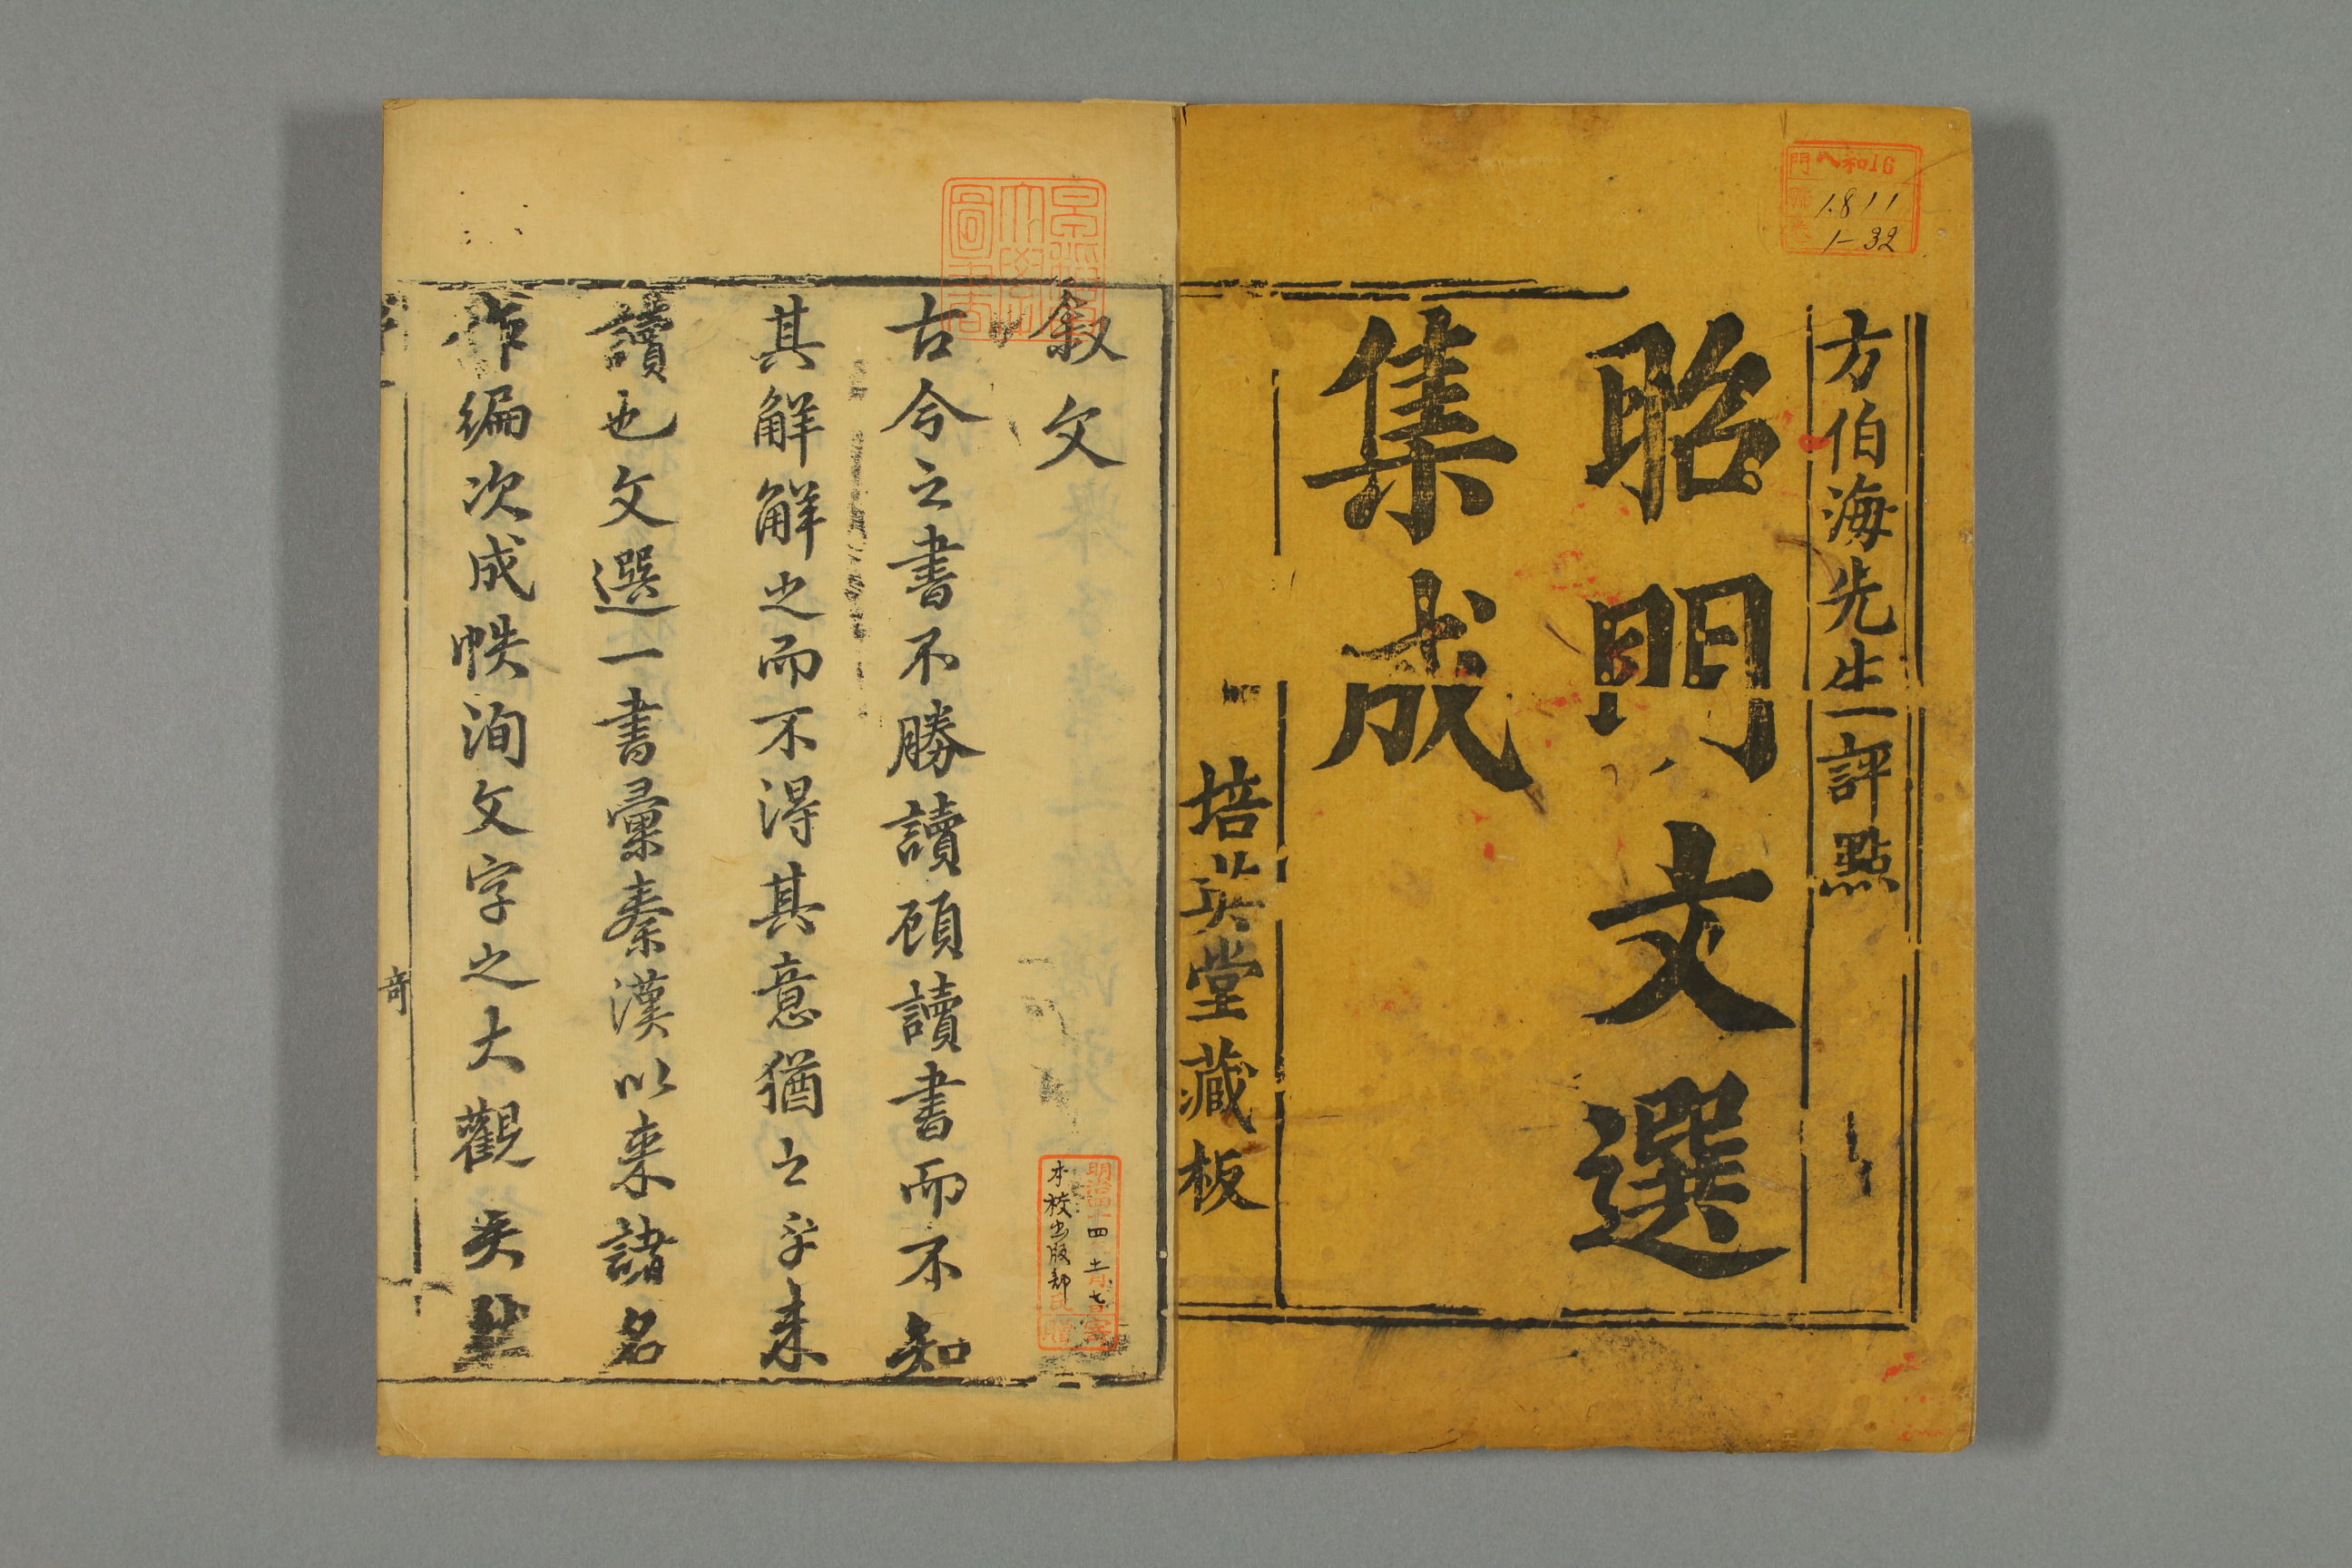 方伯海先生評點
昭明文選
集成
培英堂藏板
和16
門
1811
1-32
叙文
古今之書不勝讀顧讀書而不知
其解解之而不得其意猶之乎未
讀也文選一書彙秦漢以来諸名
作編次成帙洵文字之大觀矣
明治四十四
本校出版部